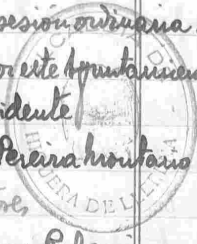 sesión ordinaria
or este Ayuntamien
sidente
Pereira Montano
HIGUERA DE LLERENA